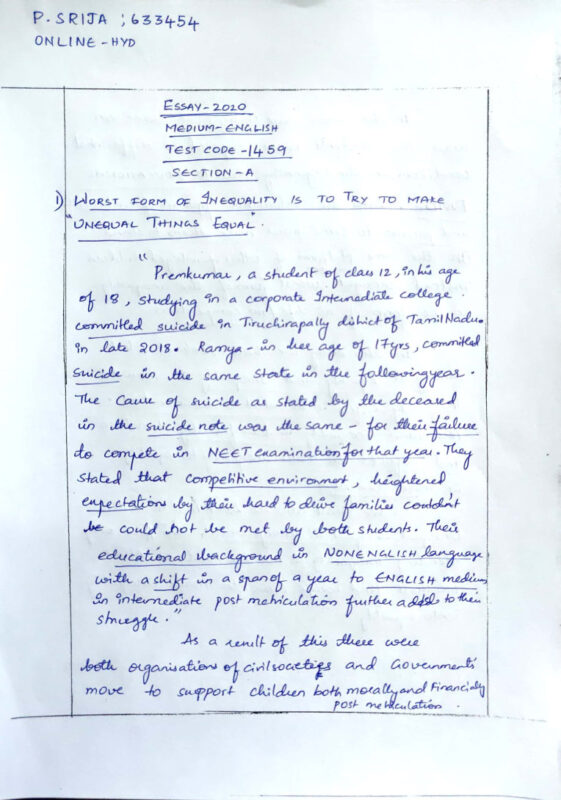 P. SRIJA ; 633454
ONLINE - HYD
ESSAY - 2020
MEDIUM - ENGLISH
TEST CODE - 1459
SECTION - A
1) WORST FORM OF INEQUALITY IS TO TRY TO MAKE
"UNEQUAL THINGS EQUAL".
"
Premkumar, a student of class 12, in his age
of 18, studying in a corporate Intermediate college
committed suicide in Tiruchirapally district of Tamil Nadu.
in late 2018. Ramya - in her age of 17yrs, committed
suicide in the same state in the following year.
The cause of suicide as stated by the deceased
in the suicide note was the same - for their failure
to compete in NEET examination for that year. They
stated that competitive environment, heightened
expectations by their hard to drive families couldn't
be could not be met by both students. Their
educational background in NON ENGLISH language
with a shift in a span of a year to ENGLISH medium
in intermediate post matriculation further added to their
struggle."
As a result of this there were
both organisations of civil societies and Governments'
move to support children both morally and Financially
post matriculation.